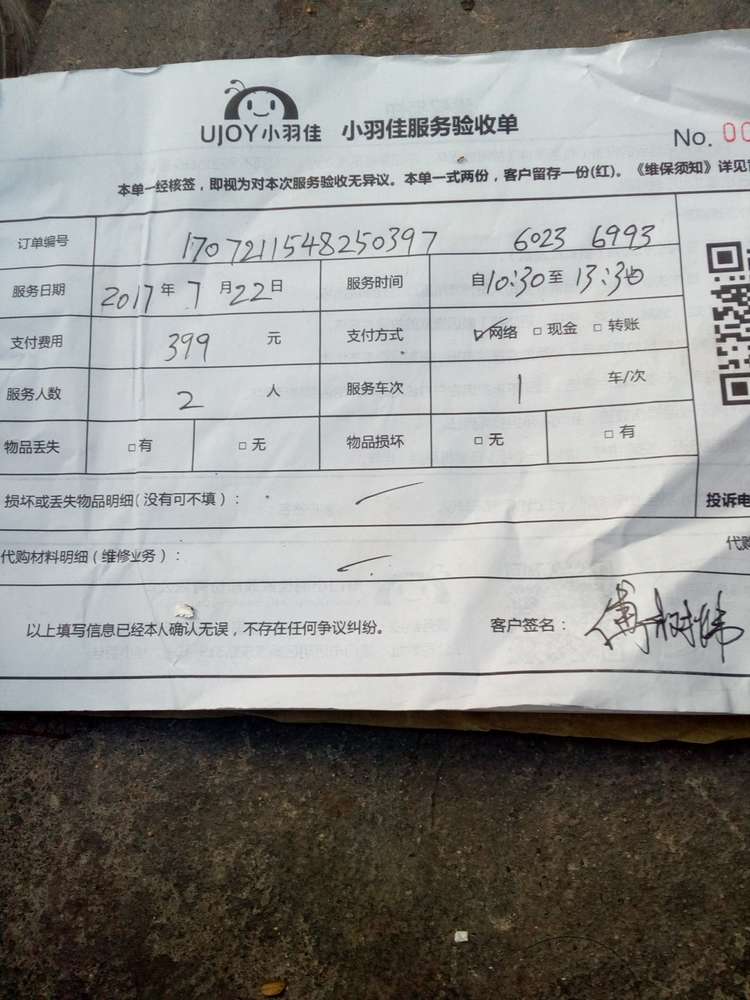 UJOY小羽佳 小羽佳服务验收单
No. 00
本单一经核签，即视为对本次服务验收无异议。本单一式两份，客户留存一份(红)。《维保须知》详见
订单编号 1707211548250397 6023 6993
服务日期 2017年7月22日 服务时间 自10:30至13:30
支付费用 399 元 支付方式 ☑网络 □现金 □转账
服务人数 2 人 服务车次 1 车/次
物品丢失 □有 □无 物品损坏 □无 □有
损坏或丢失物品明细(没有可不填)：
投诉电
代购材料明细(维修业务)：
代购
以上填写信息已经本人确认无误，不存在任何争议纠纷。 客户签名：